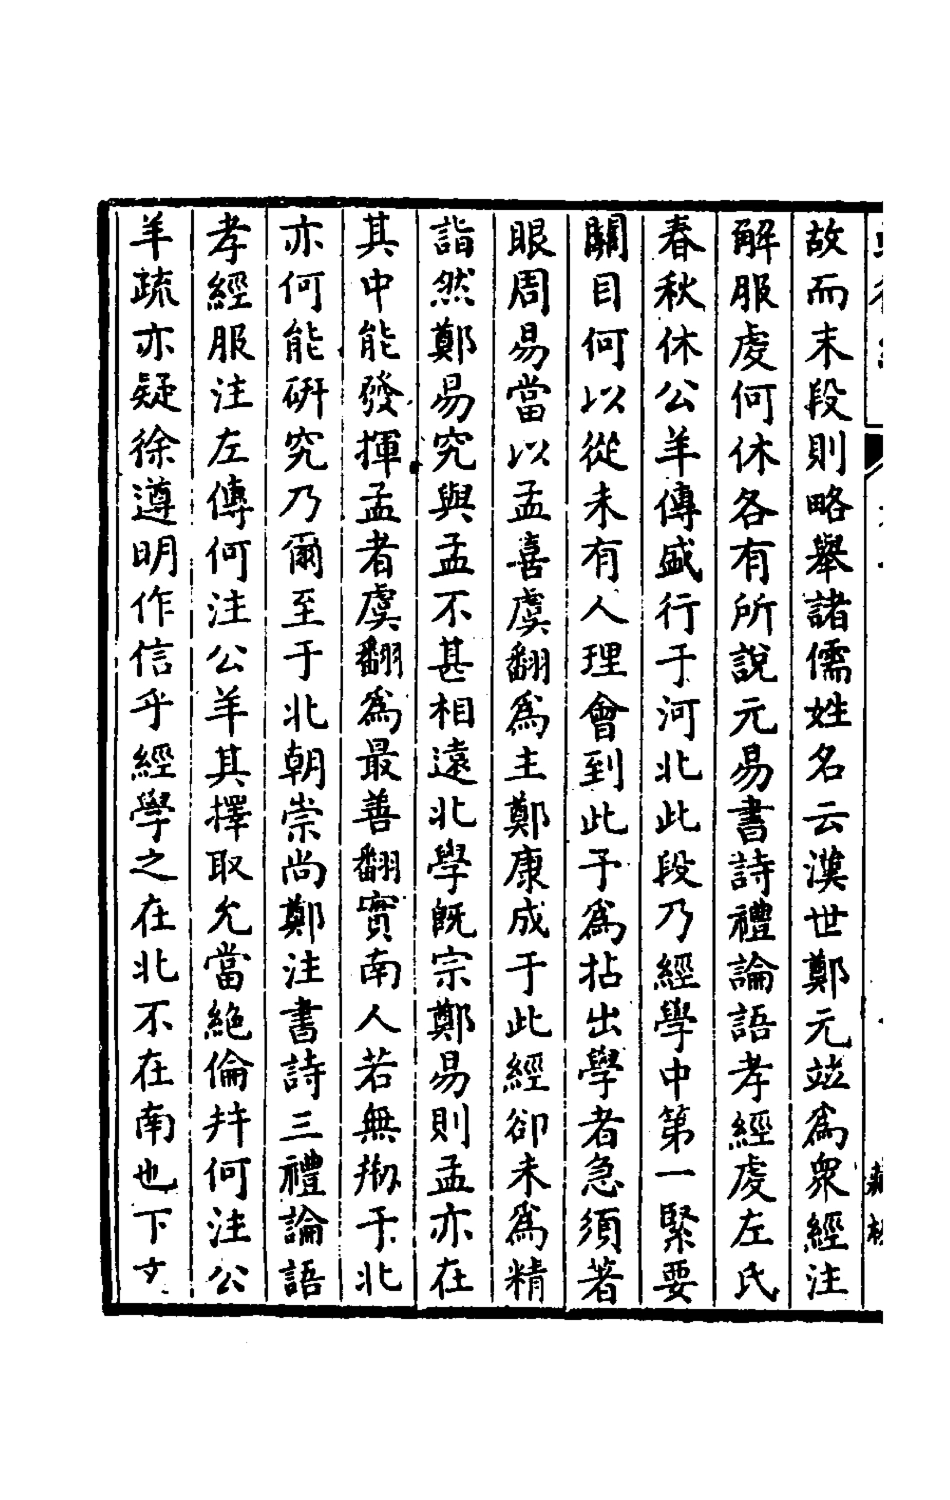 故而末段則略舉諸儒姓名云漢世鄭元竝爲衆經注
解服虔何休各有所說元易書詩禮論語孝經虔左氏
春秋休公羊傳盛行于河北此段乃經學中第一緊要
關目何以從未有人理會到此于爲拈出學者急須著
眼周易當以孟喜虞翻爲主鄭康成于此經卻未爲精
詣然鄭易究與孟不甚相遠北學既宗鄭易則孟亦在
其中能發揮孟者虞翻爲最善翻實南人若無拗于北
亦何能硏究乃爾至于北朝崇尚鄭注書詩三禮論語
孝經服注左傳何注公羊其擇取允當絶倫幷何注公
羊疏亦疑徐遵明作信乎經學之在北不在南也下文